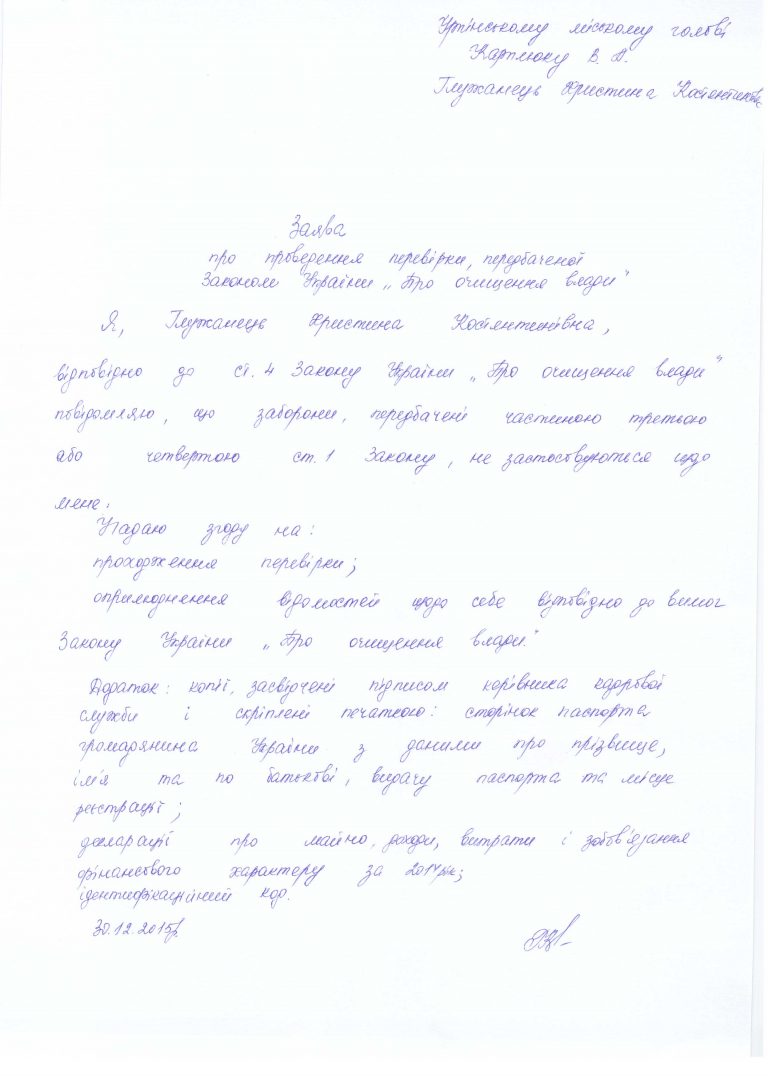 Ірпінському міському голові
Карплюку В. А.
Глужанець Христина Костянтинівна
Заява
про проведення перевірки, передбаченої
Законом України „Про очищення влади"
Я, Глужанець Христина Костянтинівна,
відповідно до ст. 4 Закону України „Про очищення влади"
повідомляю, що заборони, передбачені частиною третьою
або четвертою ст. 1 Закону, не застосовуються щодо
мене.
Надаю згоду на:
проходження перевірки;
оприлюднення відомостей щодо себе відповідно до вимог
Закону України „Про очищення влади."
Додаток: копії, засвідчені підписом керівника кадрової
служби і скріплені печаткою: сторінок паспорта
громадянина України з даними про прізвище,
ім'я та по батькові, видачу паспорта та місце
реєстрації;
декларації про майно, доходи, витрати і зобов'язання
фінансового характеру за 2014 рік;
ідентифікаційний код.
30.12.2015р.